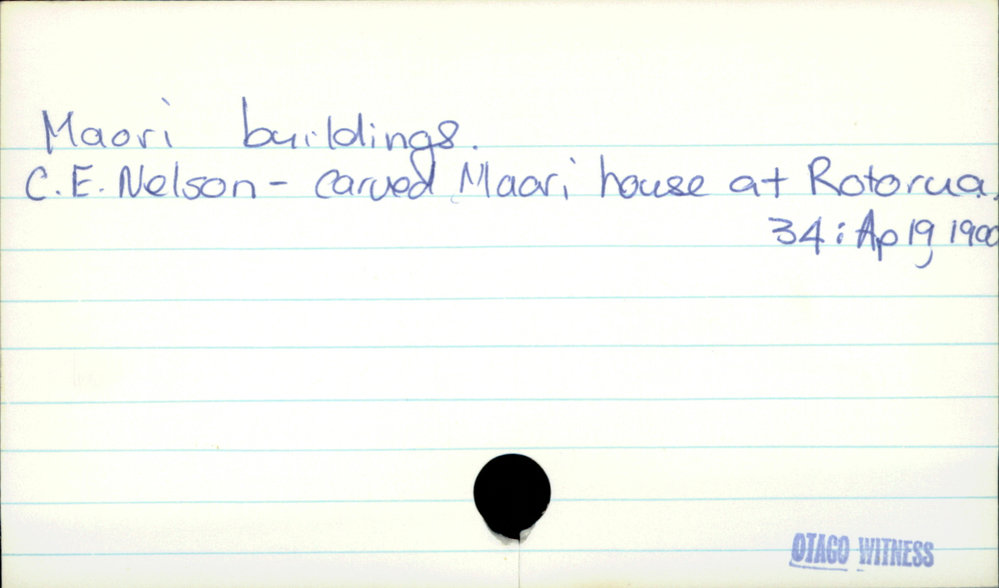 Maori buildings.
C.E. Nelson - carved Maori house at Rotorua.
34: Ap 19, 1900
OTAGO WITNESS